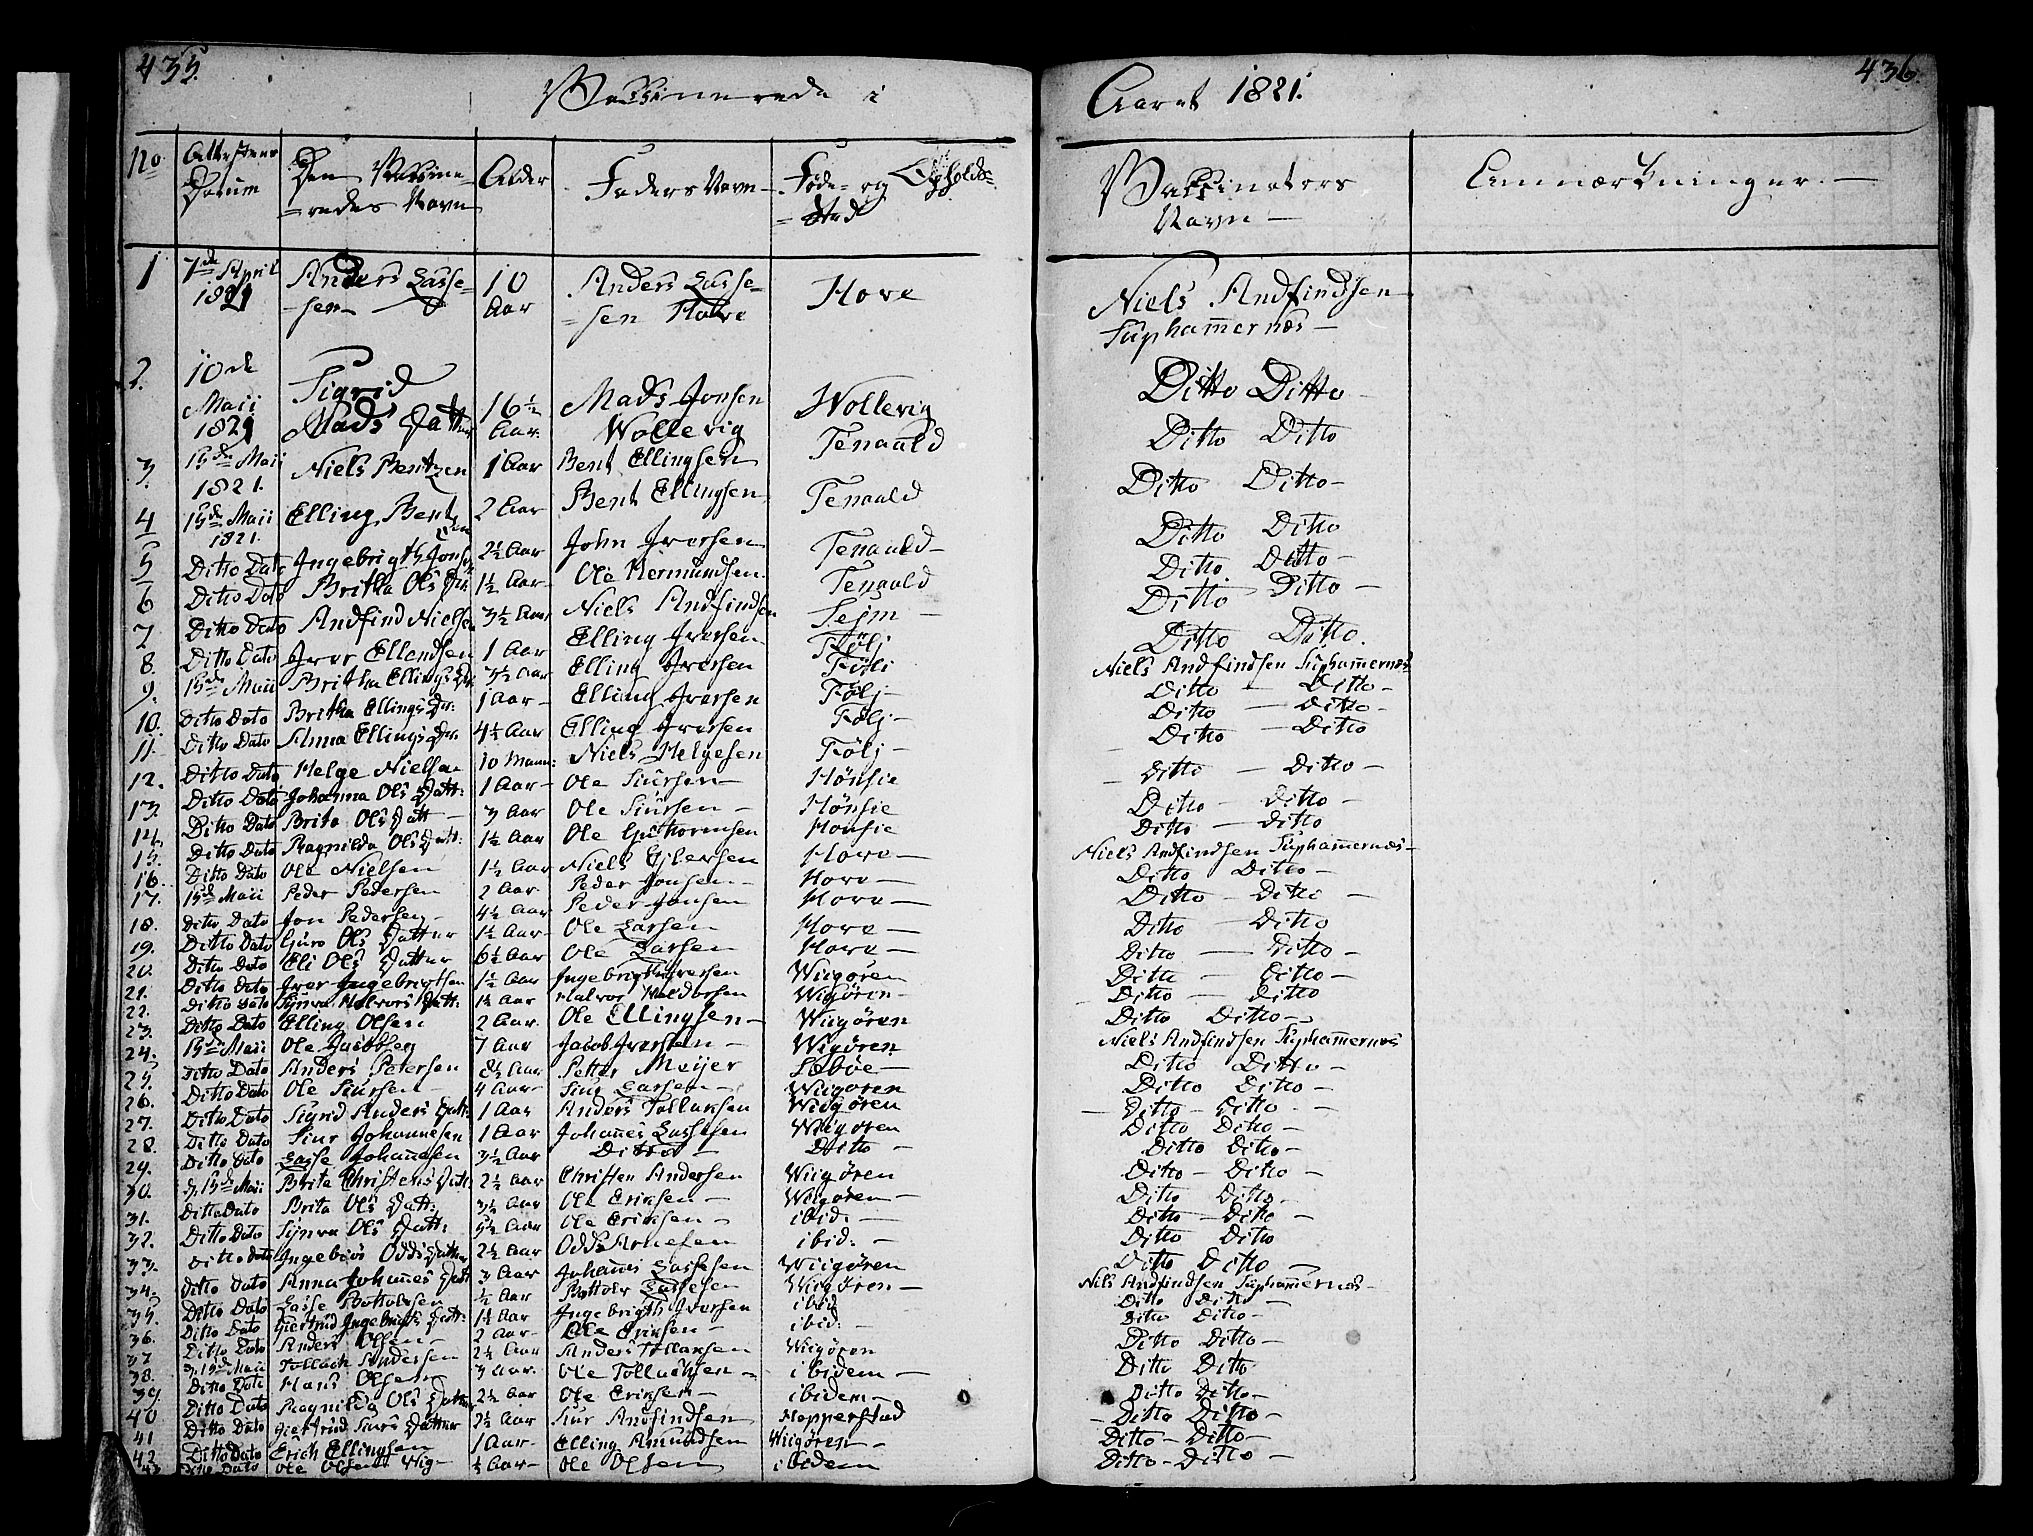 435.
436.
Vaksinerede i
Aaret 1821.
No Attestens Datum Den Vaksineredes Navn Alder Faders Navn Føde- og Opholds-Sted
Vaksinators Navn Anmærkninger.
1 7de April 1821 Anders Lassesen 10 Aar Anders Lassesen Hove Hove Niels Andfindsen Süphammernæs
2. 10de Maii 1821 Sigrid Mads Datter 16½ Aar. Mads Jonsen Wollevig Wollevig Ditto Ditto
3. 15de Maii 1821. Niels Bentzen 1 Aar Bent Ellingsen Tenaald Ditto Ditto
4 15de Maii 1821. Elling Bentzen 2 Aar Bent Ellingsen Tenaald Ditto Ditto
5 Ditto Dato Ingebrigth Jonsen 2½ Aar John Iversen Tenaald Ditto Ditto
6 Ditto Dato Britha Ols Dr 1½ Aar Ole Hermundsen Tenaald Ditto Ditto
7 Ditto Dato Andfind Nielsen 3½ Aar Niels Andfindsen Sejm Ditto Ditto
8. Ditto Dato Iver Ellendsen 1 Aar Elling Iversen Følj Ditto Ditto.
9. 15de Maii Britha Ellings Dr 3½ Aar Elling Iversen Følj Niels Andfindsen Süphammernæs
10. Ditto Dato Britha Ellings Dr. 1 Aar Elling Iversen Følj Ditto Ditto
11. Ditto Dato Anna Ellings Dr. 4½ Aar Elling Iversen Følj Ditto Ditto
12. Ditto Dato Helge Nielsen 10 Maan: Niels Helgesen Følj Ditto Ditto
13. Ditto Dato Johanna Ols Datt: 1 Aar Ole Siursen Hønsie Ditto Ditto
14. Ditto Dato Brita Ols Datt 3 Aar Ole Siursen Hønsie Ditto Ditto
15. Ditto Dato Ragnilda Ols Datt: 1½ Aar Ole Guthormsen Honsie Ditto Ditto
16. Ditto Dato Ole Nielsen 1½ Aar Niels Hove Niels Andfindsen Süphammernæs
17. 15de Maii Peder Pedersen 2 Aar Peder Jonsen Hove Ditto Ditto
18. Ditto Dato Jon Pedersen 4½ Aar Peder Jonsen Hove Ditto Ditto
19. Ditto Dato Guro Ols Datter 1½ Aar Ole Larsen Hove Ditto Ditto
20. Ditto Dato Eli Ols Datter 6½ Aar Ole Larsen Hove Ditto Ditto
21. Ditto Dato Iver Ingebrigtsen 1½ Aar Ingebrigth Iversen Wiigøren Ditto Ditto
22. Ditto Dato Synva Halvors Datt: 1½ Aar Halvor Haldorsen Wiigøren Ditto Ditto
23. Ditto Dato Elling Olsen 2 Aar. Ole Ellingsen Wiigøren Ditto Ditto
24. 15de Maii Ole Jacobsen 7 Aar Jacob Iversen Wigøren Niels Andfindsen Süphammernæs
25. Ditto Dato Anders Petersen Aar Petter Meijer Ditto Ditto
26. Ditto Dato Ole Siursen 4 Aar Siur Larsen Wiigøren Ditto Ditto
27. Ditto Dato Sigrid Anders Datt: 1 Aar Anders Tollaksen Wiigøren Ditto Ditto
28. Ditto Dato Siur Johannesen 1 Aar Johannes Lassesen Wiigøren Ditto Ditto
29. Ditto Dato Lasse Johannesen 3½ Aar Ditto Ditto Ditto Ditto
30. d. 15de Maii Brita Christens Datt: 2½ Aar Christen Andersen Wiigøren Ditto Ditto
31. Ditto Dato Brita Ols Datt: 3½ Aar Ole Ericksen Wiigøren Ditto Ditto
32. Ditto Dato Synva Ols Datt: 5½ Aar Ole Ericksen ibid: Ditto Ditto
33. Ditto Dato Ingebiør Odds Datter 2½ Aar Odd Arnesen ibid: Ditto Ditto
34. Ditto Dato Anna Johannes Datt 3 Aar Johannes Lassesen Wiigøren Ditto Ditto
35. Ditto Dato Lasse Bottolvsen ½ Aar Bottolv Lassesen Wiigøren Niels Andfindsen Süphammernæs
36. Ditto Dato Giertrud Ingebrigts Datt: 1½ Aar Ingebrigth Iversen ibid Ditto Ditto
37 Ditto Dato Anders Olsen 2 Aar Ole Ericksen ibid: Ditto Ditto
38. d. 15de Maii Tollack Andersen 2½ Aar Anders Tollaksen Wiigøren Ditto Ditto
39. Ditto Dato Hans Olsen 3 Aar. Ole Tollachsen ibidem Ditto Ditto
40 Ditto Dato Ragnilda Ols Datter 2½ Aar Ole Ericksen ibidem Ditto Ditto
41 Ditto Dato Giertrud Siurs Datter 2½ Aar Siur Andfindsen Hopperstad Ditto Ditto
42 Ditto Dato Erich Ellingsen 1 Aar Elling Amundsen Wiigøren Ditto Ditto
43 Ditto Dato Ole Olsen Wig ½ Aar Ole Olsen ibidem Ditto Ditto